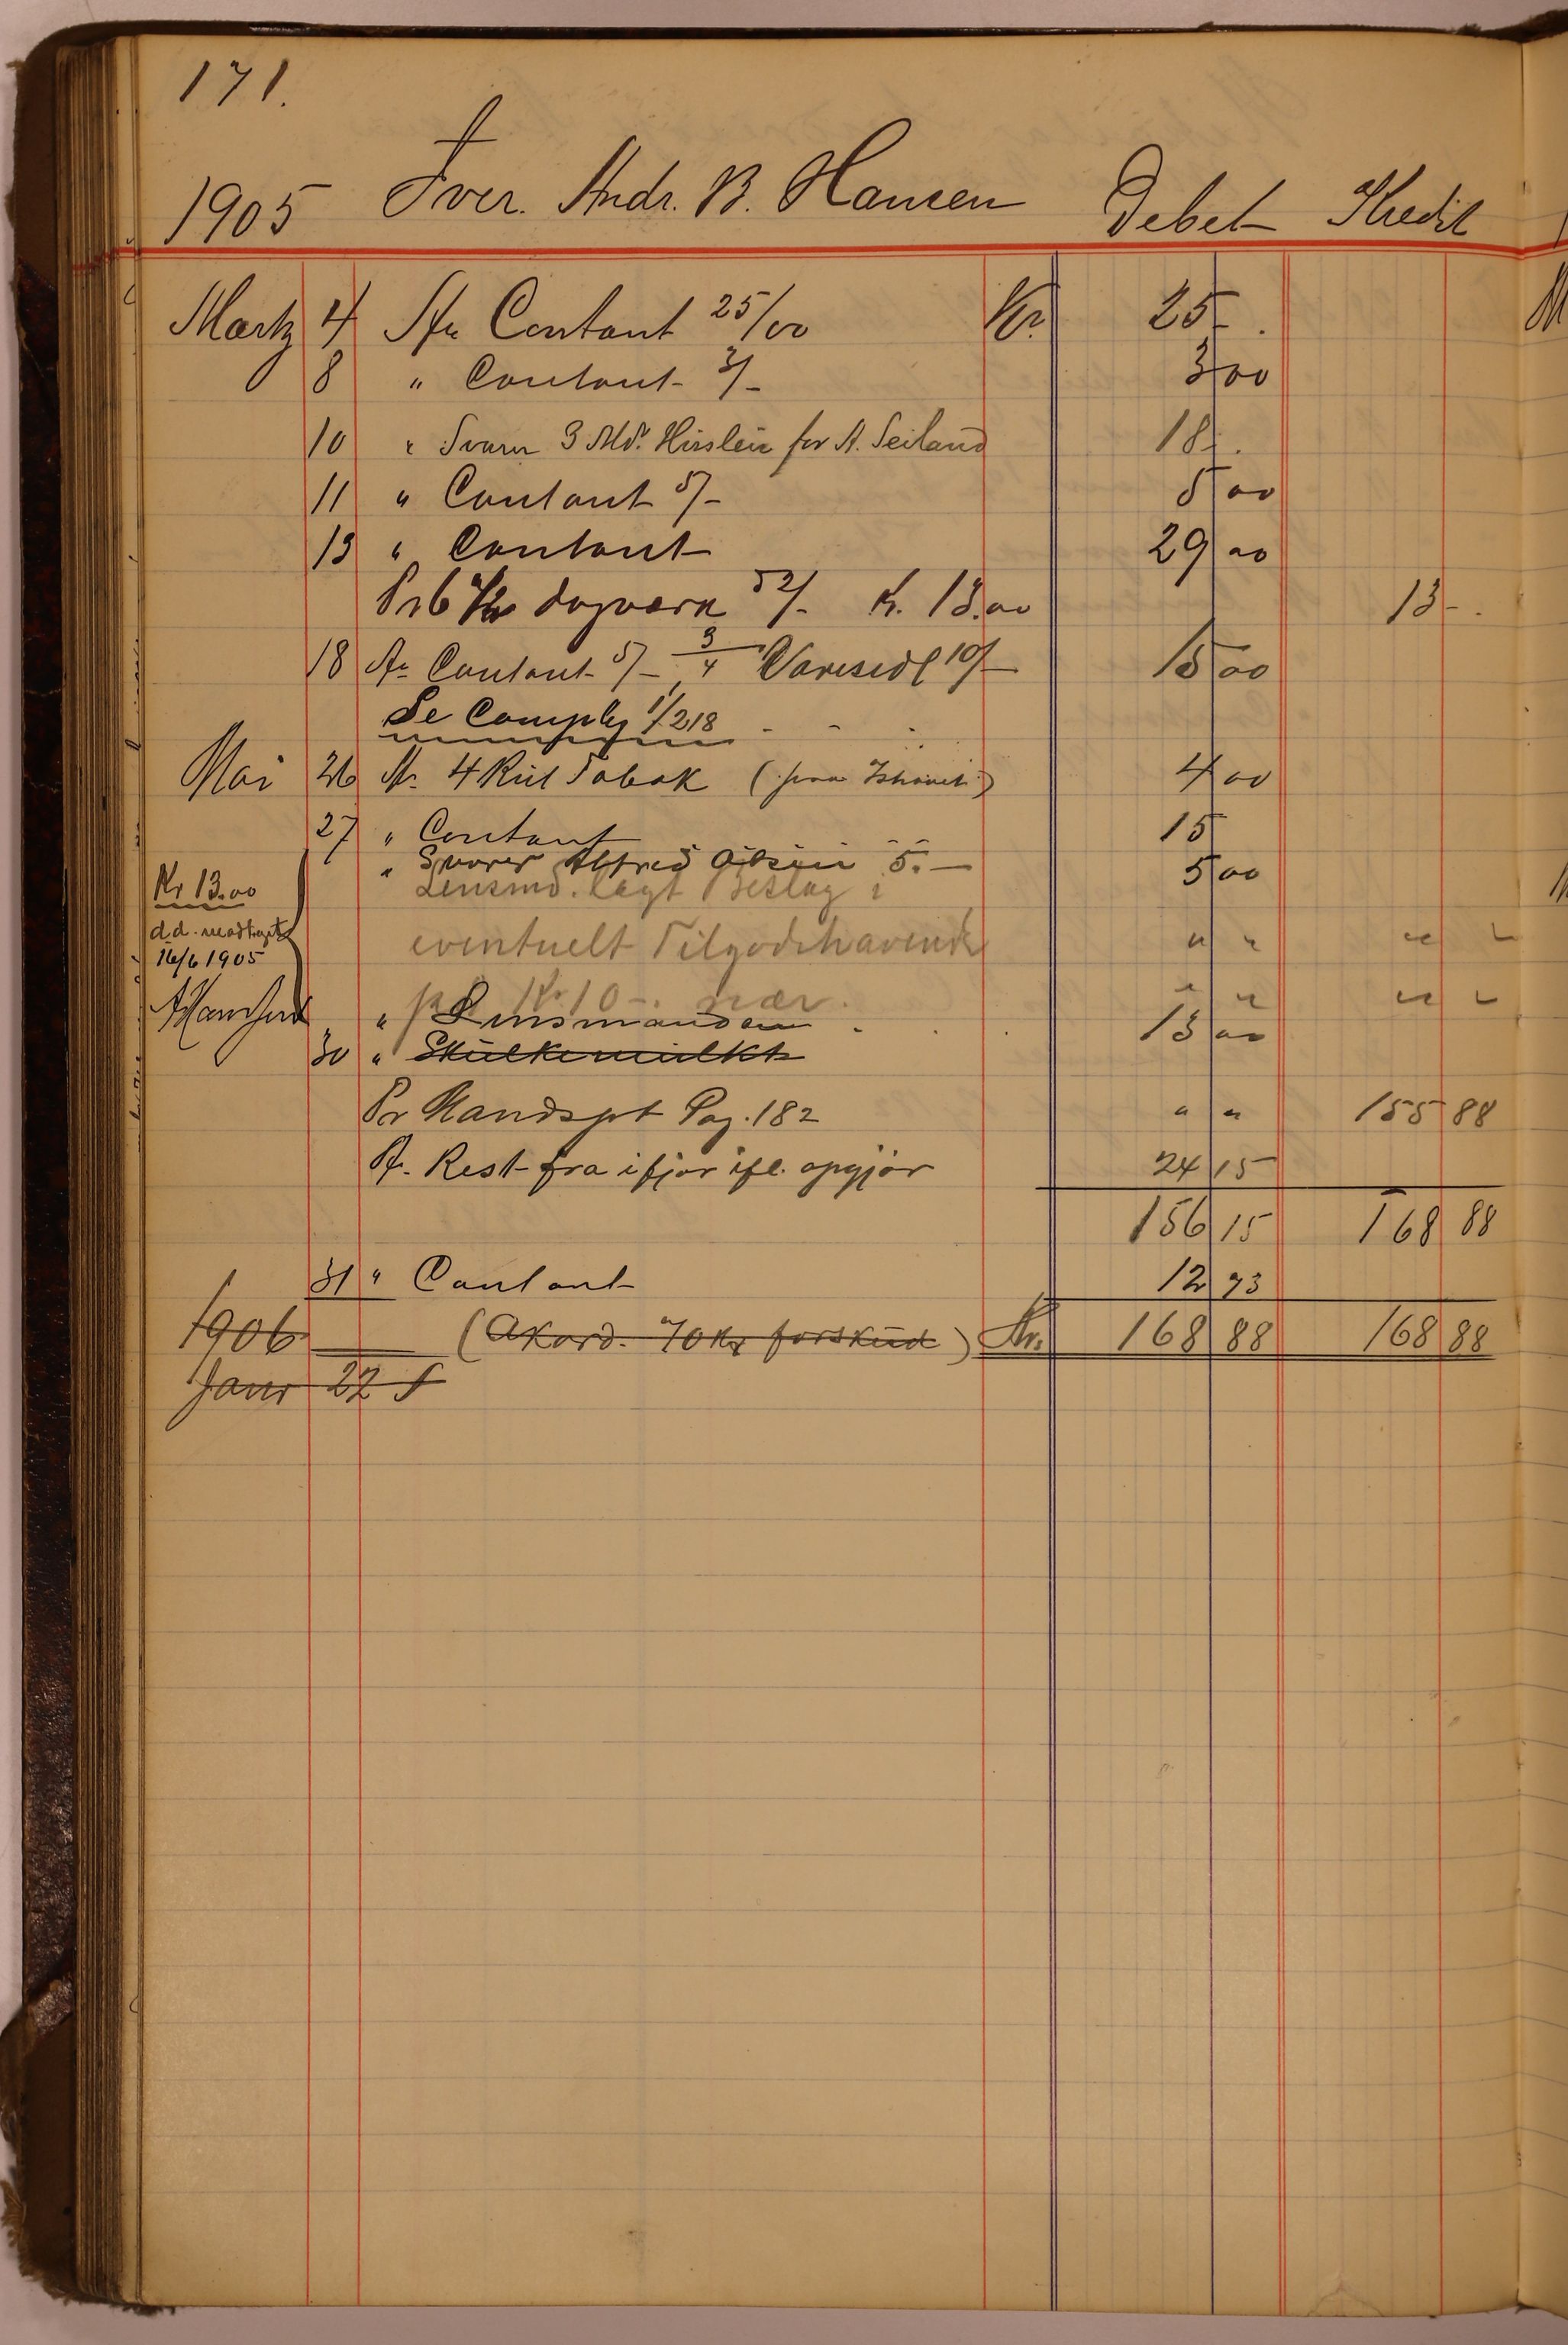 171.
1905 Iver. Andr. B. Hansen Debet Kredit
Marts 4 An Contant 25/00 Kr. 25 - .
8 " Contant 3/- 3 00
10 " Svarer 3 Md. Husleie for A. Seiland 18 - .
11 " Contant 5/- 5 00
13 " Contant 29 00
Pr 6 1/2 dagværk 52/- K. 13.00 13 - .
18 An Contant 5/- 3/4 Varesedl 10/- 15 00
Se Compbg 1/218
Mai 26 An 4 Rul Tobak (fra Ishavet) 4 00
27 " Contant 15
" Svarer Alfred Olsen 5.— 5 00
Lensmd. lagt Beslag i
Kr 13.00
d.d. modtaget
16/6 1905
eventuelt Tilgodehavende " " " "
på Kr. 10 -. nær. " " " "
" Lensmanden 13 00
30 " Skulkemulkt
Pr Mandspt Pag. 182 " " 155 88
An Rest fra ifjor ifl. opgjør 24 15
156 15 168 88
31 " Contant 12 73
1906 (Akord. 70 Kr forskud) Kr. 168 88 168 88
Janr 22